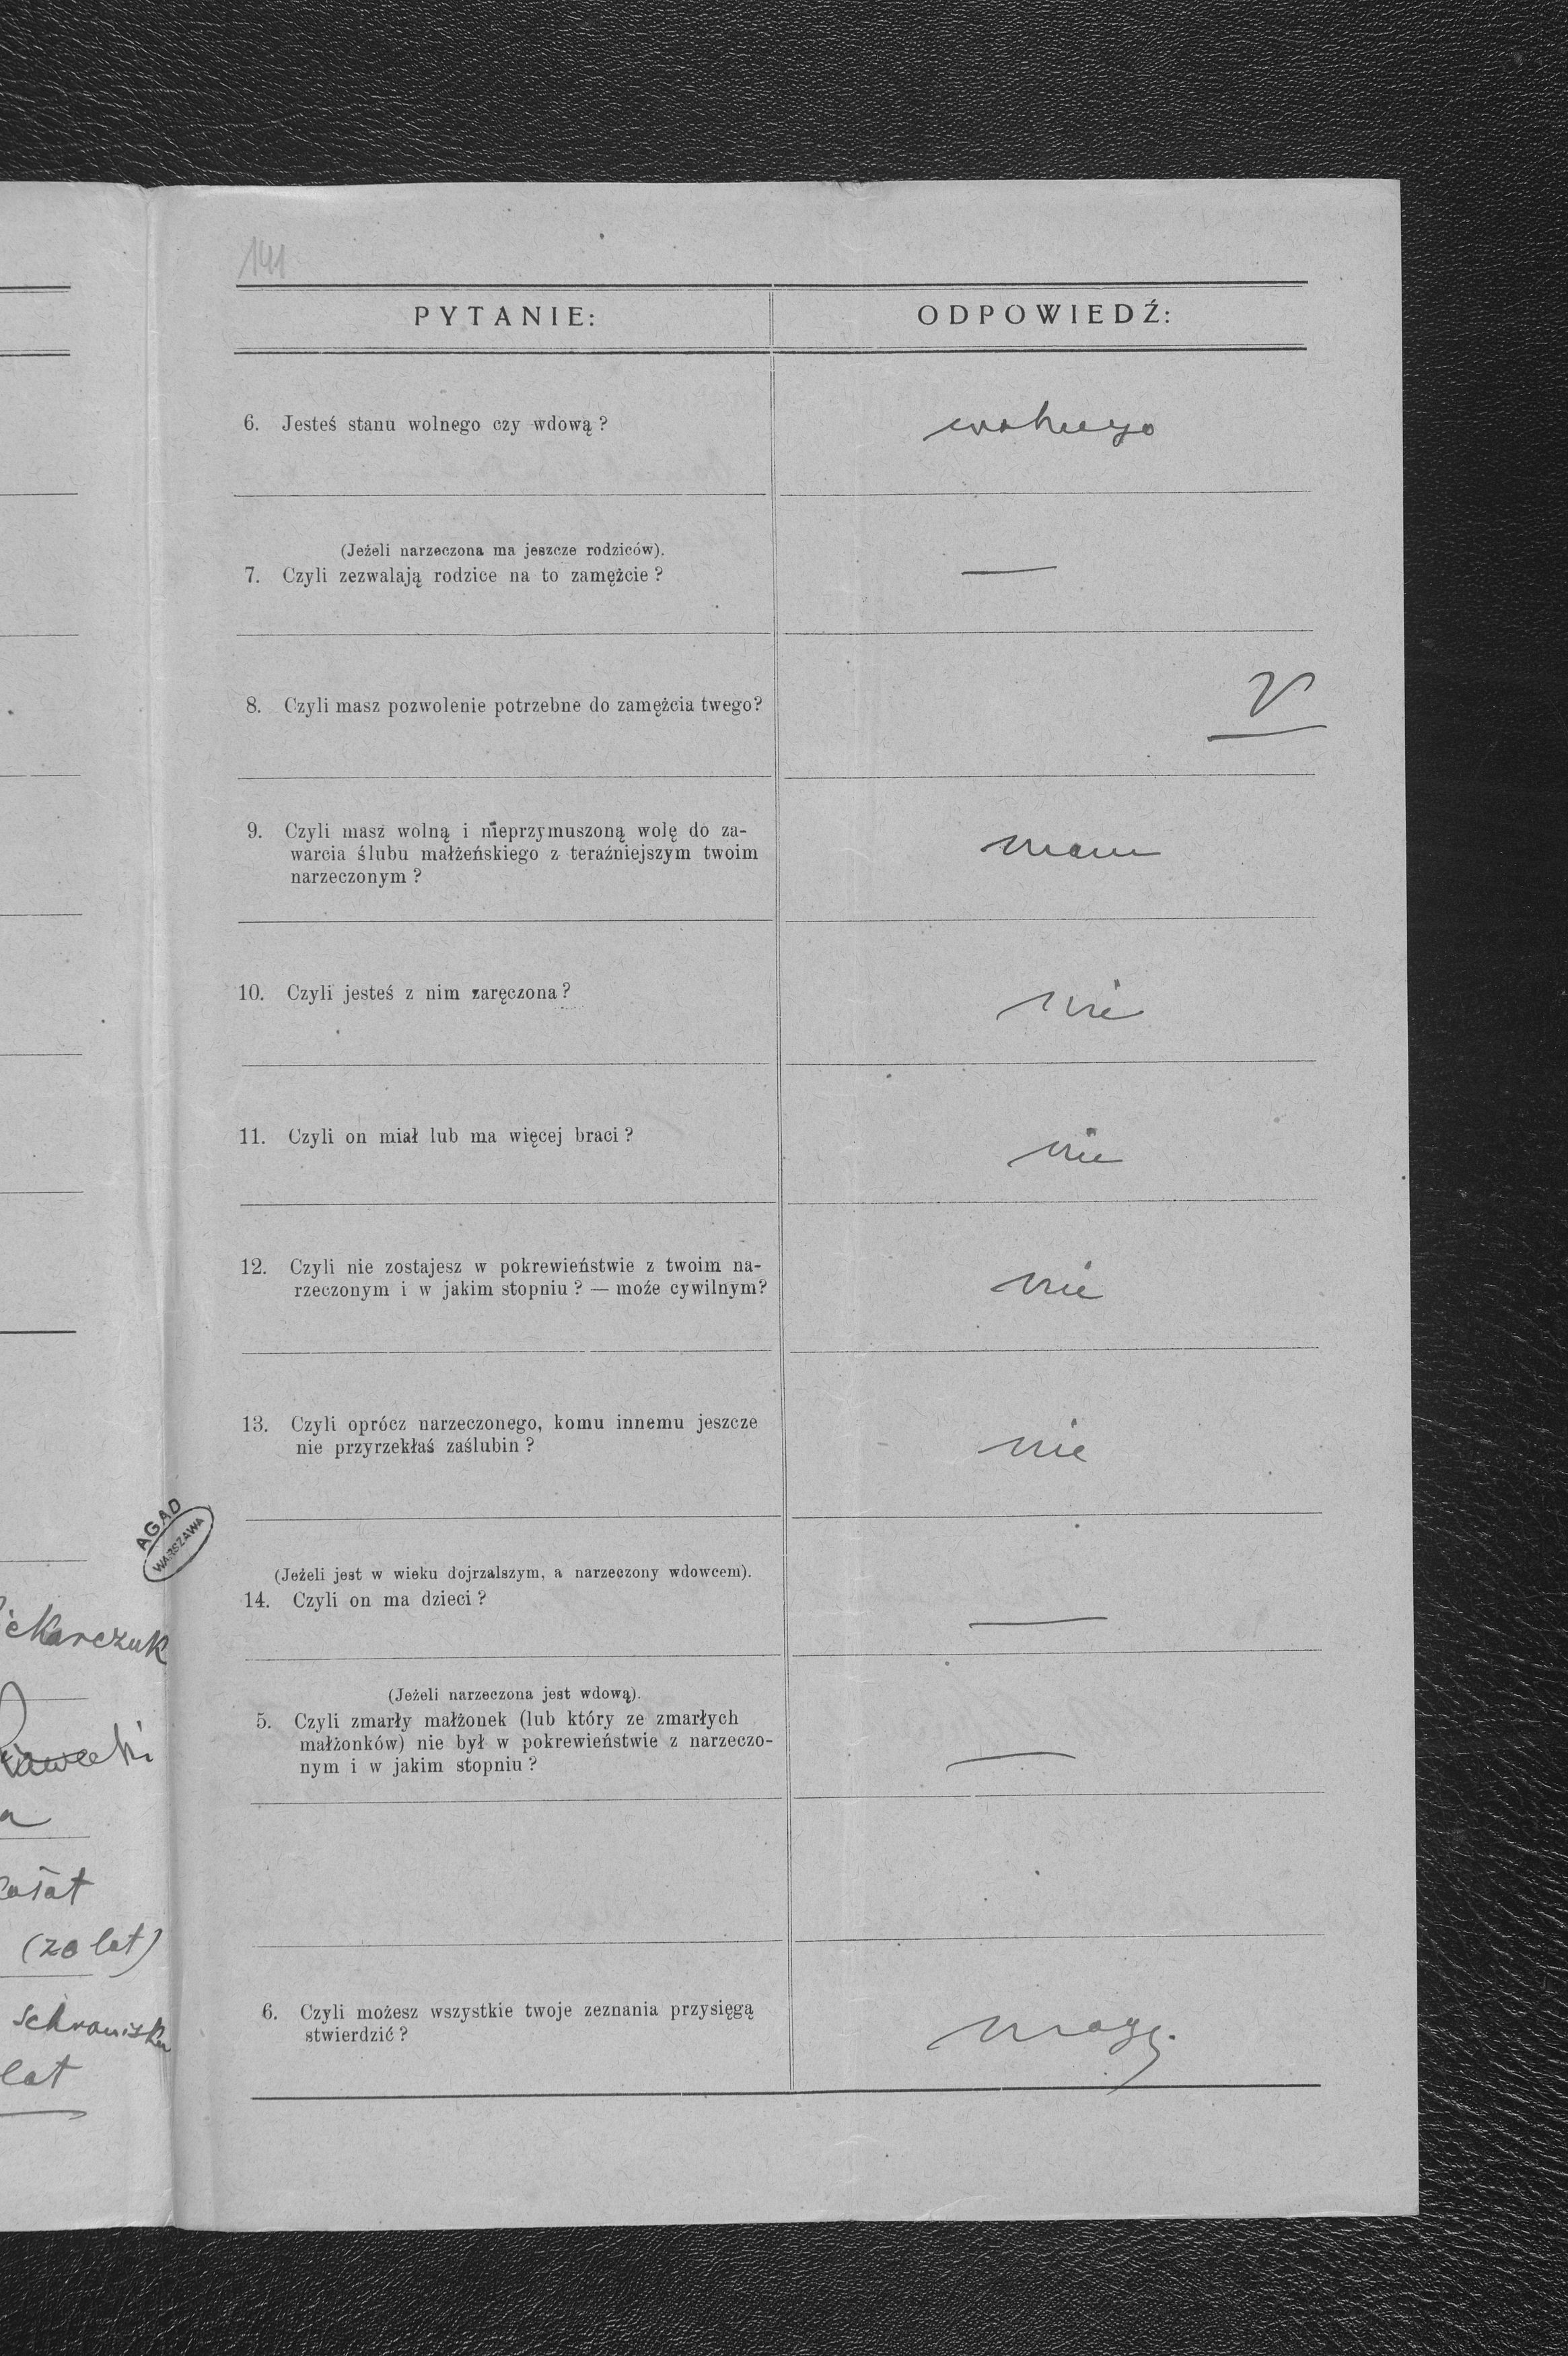 141
PYTANIE:
ODPOWIEDŹ:
6. Jesteś stanu wolnego czy wdową?
wolnego
(Jeżeli narzeczona ma jeszcze rodziców).
7. Czyli zezwalają rodzice na to zamężcie?
—
8. Czyli masz pozwolenie potrzebne do zamężcia twego?
V
9. Czyli masz wolną i nieprzymuszoną wolę do za-
warcia ślubu małżeńskiego z teraźniejszym twoim
narzeczonym?
mam
10. Czyli jesteś z nim zaręczona?
nie
11. Czyli on miał lub ma więcej braci?
nie
12. Czyli nie zostajesz w pokrewieństwie z twoim na-
rzeczonym i w jakim stopniu? — może cywilnym?
nie
13. Czyli oprócz narzeczonego, komu innemu jeszcze
nie przyrzekłaś zaślubin?
nie
(Jeżeli jest w wieku dojrzalszym, a narzeczony wdowcem).
14. Czyli on ma dzieci?
—
(Jeżeli narzeczona jest wdową).
5. Czyli zmarły małżonek (lub który ze zmarłych
małżonków) nie był w pokrewieństwie z narzeczo-
nym i w jakim stopniu?
—
6. Czyli możesz wszystkie twoje zeznania przysięgą
stwierdzić?
mogę.
AGAD
WARSZAWA
ekarczuk
awecki
a
(20 lat)
schronisku
lat